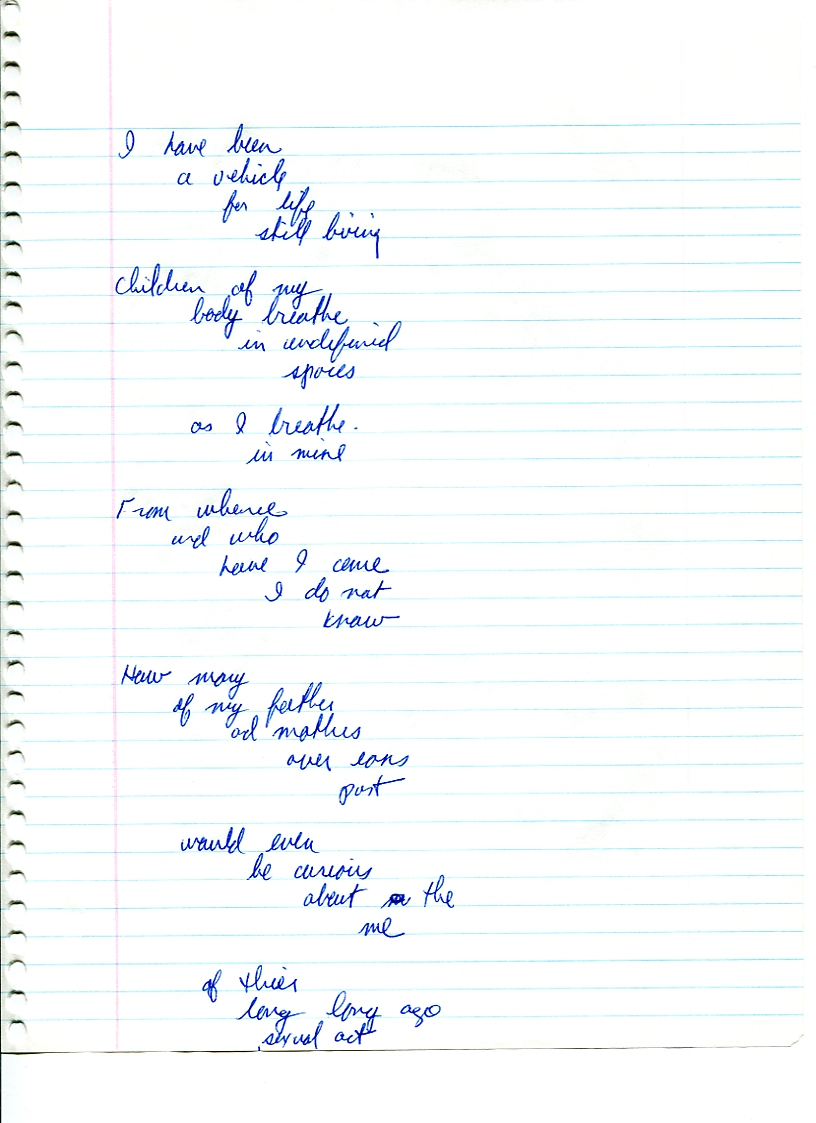 I have been
a vehicle
for life
still living
children of my
body breathe
in undefined
spaces
as I breathe.
in mine
From whence
and who
have I come
I do not
know
How many
of my father
and mothers
over eons
past
would even
be curious
about the
me
of thier
long long ago
sexual act